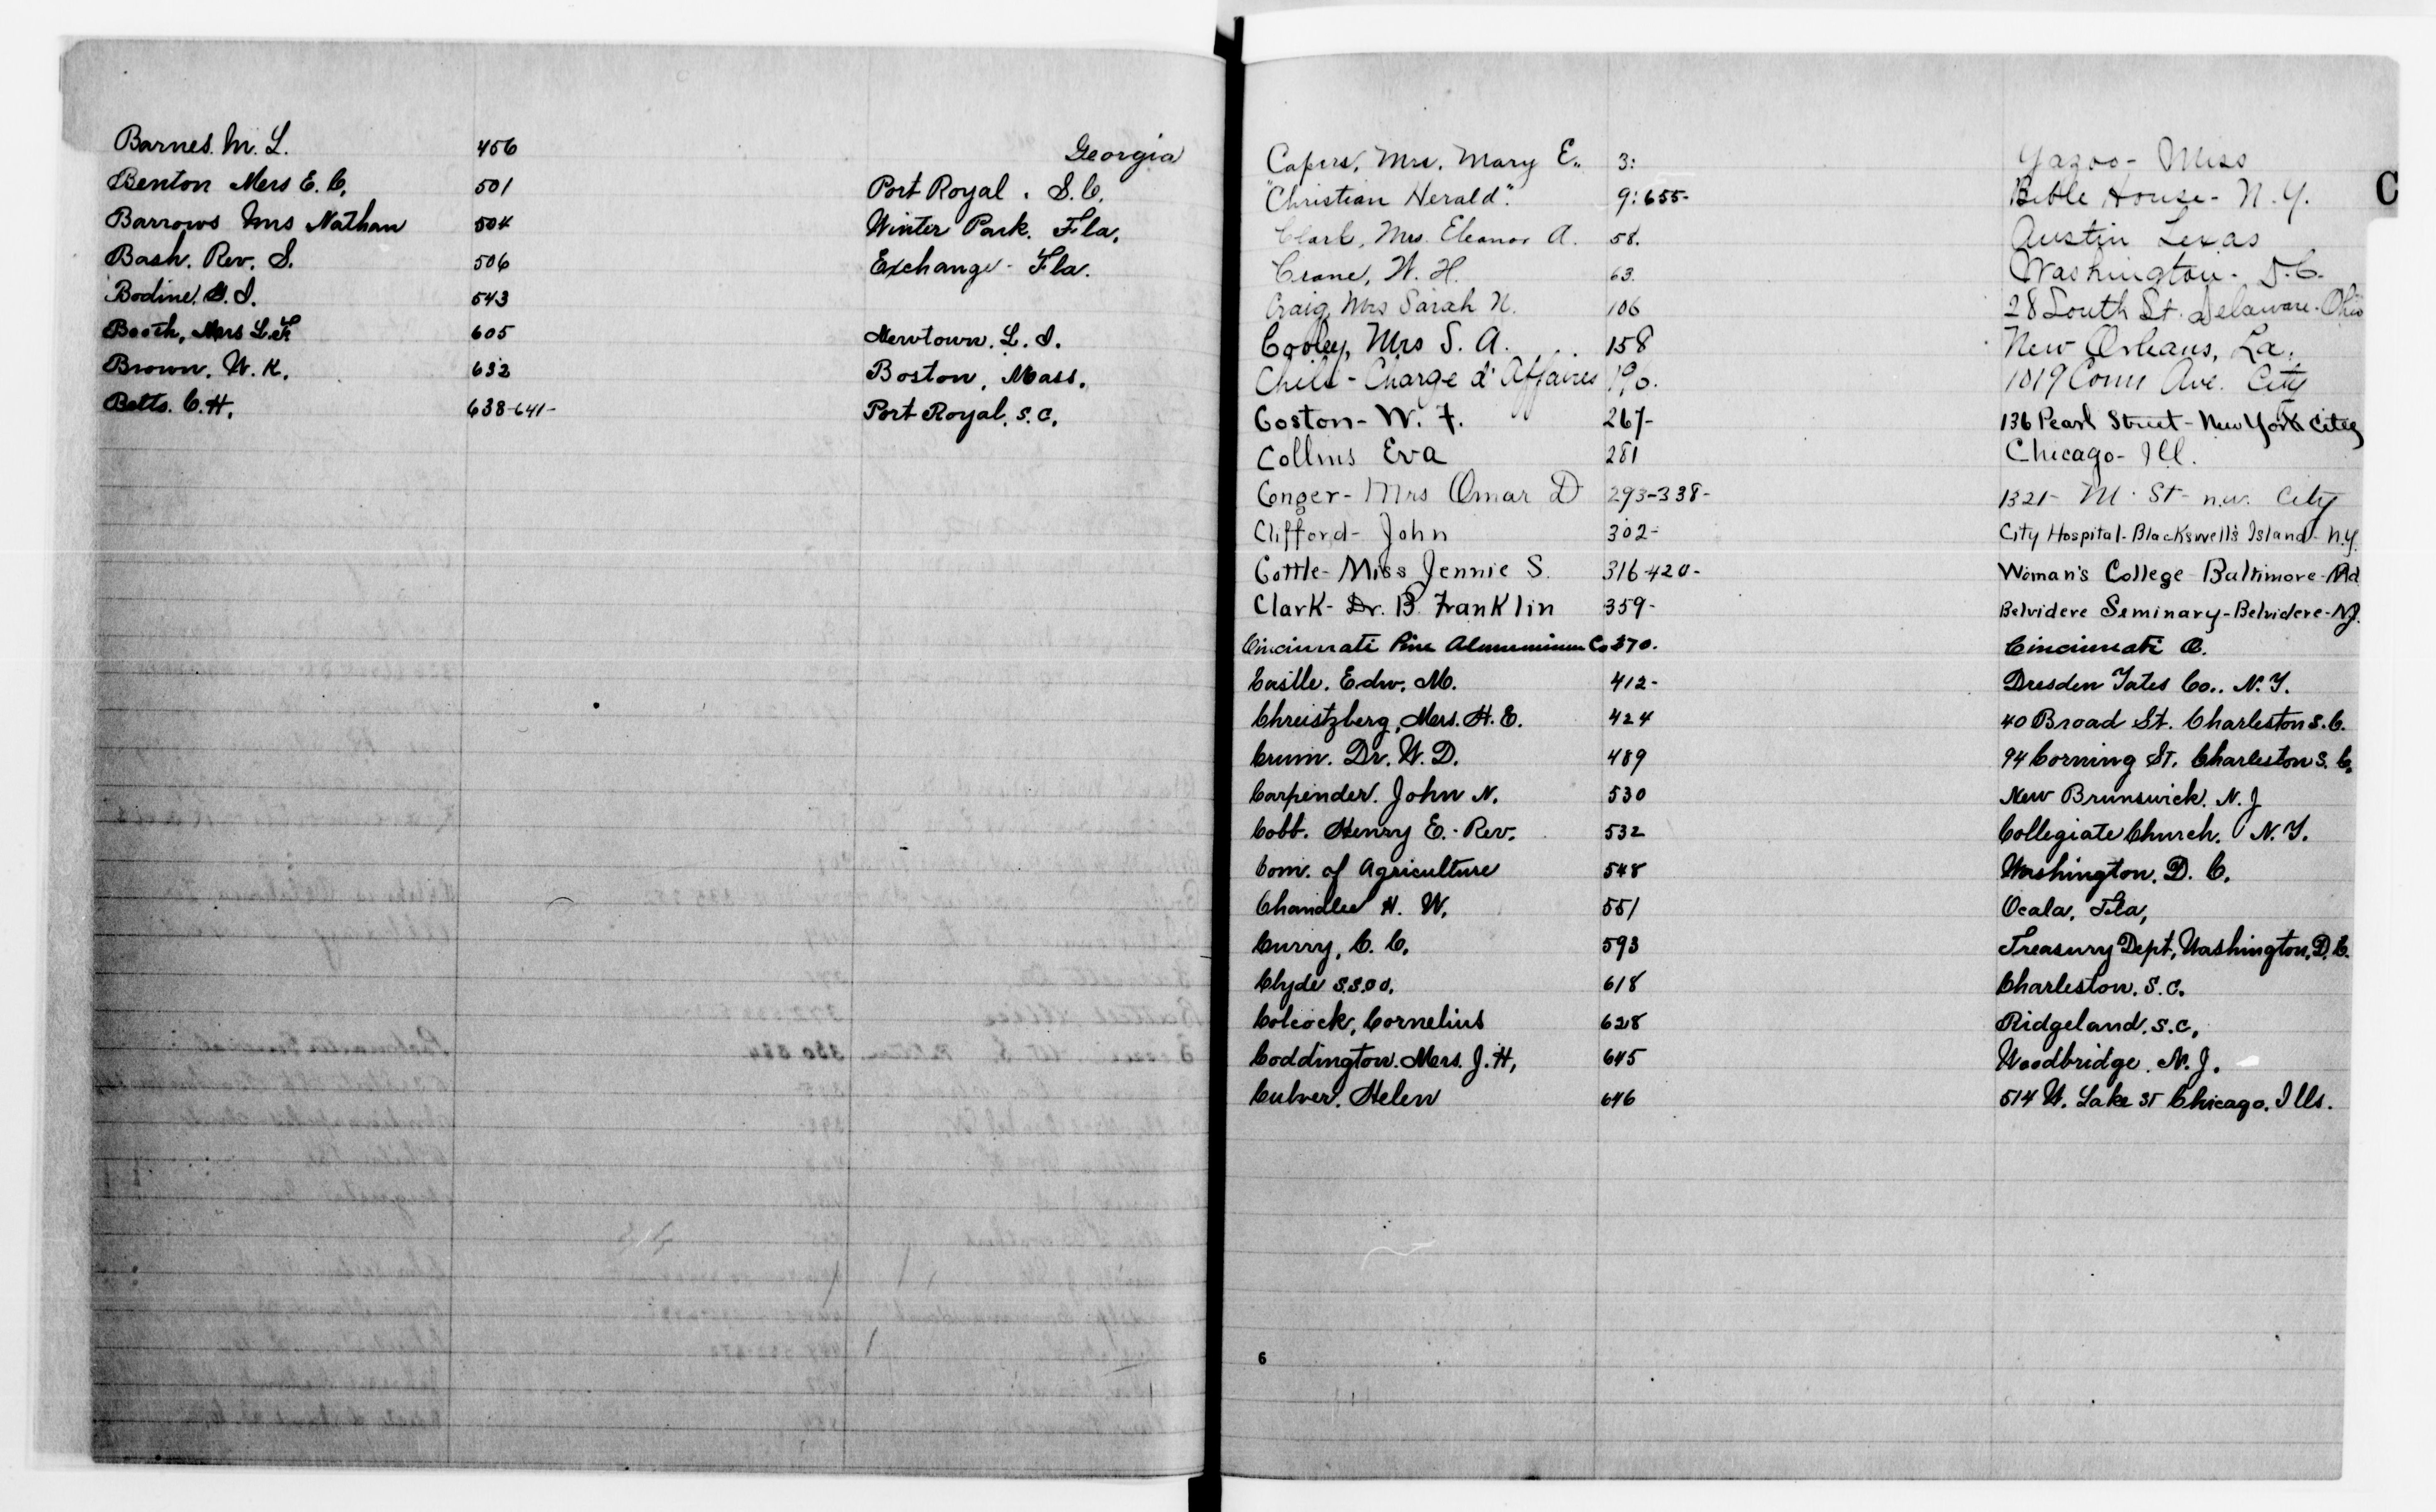 Barnes. M. L. 456 Georgia
Benton Mrs E. C. 501 Port Royal. S. C.
Barrows Mrs Nathan 504 Winter Park. Fla.
Bash. Rev. S. 506 Exchange - Fla.
Bodine. I. 543
Booth, Mrs L. 605 Newtown. L. I.
Brown. W. K. 632 Boston, Mass.
Betts. C. H. 638-641- Port Royal. S. C.
C
Capers, Mrs. Mary E. 3: Yazoo - Miss
"Christian Herald". 9: 655- Bible House - N. Y.
Clark, Mrs. Eleanor A. 58. Austin Texas
Crane, W. H. 63. Washington - D. C.
Craig, Mrs Sarah N. 106 28 South St. Delaware. Ohio
Cooley, Mrs S. A. 158 New Orleans, La.
Chili - Charge d'Affaires 190. 1019 Conn Ave. City
Coston - W. F. 267- 136 Pearl Street - New York City
Collins Eva 281 Chicago - Ill.
Conger - Mrs Omar D 293-338- 1321- M. St - n.w. City
Clifford - John 302- City Hospital - Blackswell's Island - N.Y.
Cottle - Miss Jennie S. 316-420- Woman's College - Baltimore - Md
Clark - Dr. B. Franklin 359- Belvidere Seminary - Belvidere - N.J.
Cincinnati Pure Alumminium Co 370. Cincinnati O.
Castle. Edw. M. 412- Dresden Yates Co.. N. Y.
Chreitzberg, Mrs. H. E. 424 40 Broad St. Charleston S. C.
Crum. Dr. W. D. 489 94 Corning St. Charleston S. C.
Carpender. John N. 530 New Brunswick. N. J
Cobb. Henry E. - Rev. 532 Collegiate Church. N. Y.
Com. of Agriculture 548 Washington. D. C.
Chandler H. W. 551 Ocala, Fla,
Curry, C. C. 593 Treasury Dept, Washington, D. C.
Clyde S.S. 618 Charleston. S. C.
Colcock, Cornelius 628 Ridgeland. S. C.
Coddington. Mrs. J. H, 645 Woodbridge. N. J.
Culver. Helen 646 514 W. Lake St Chicago. Ills.
6